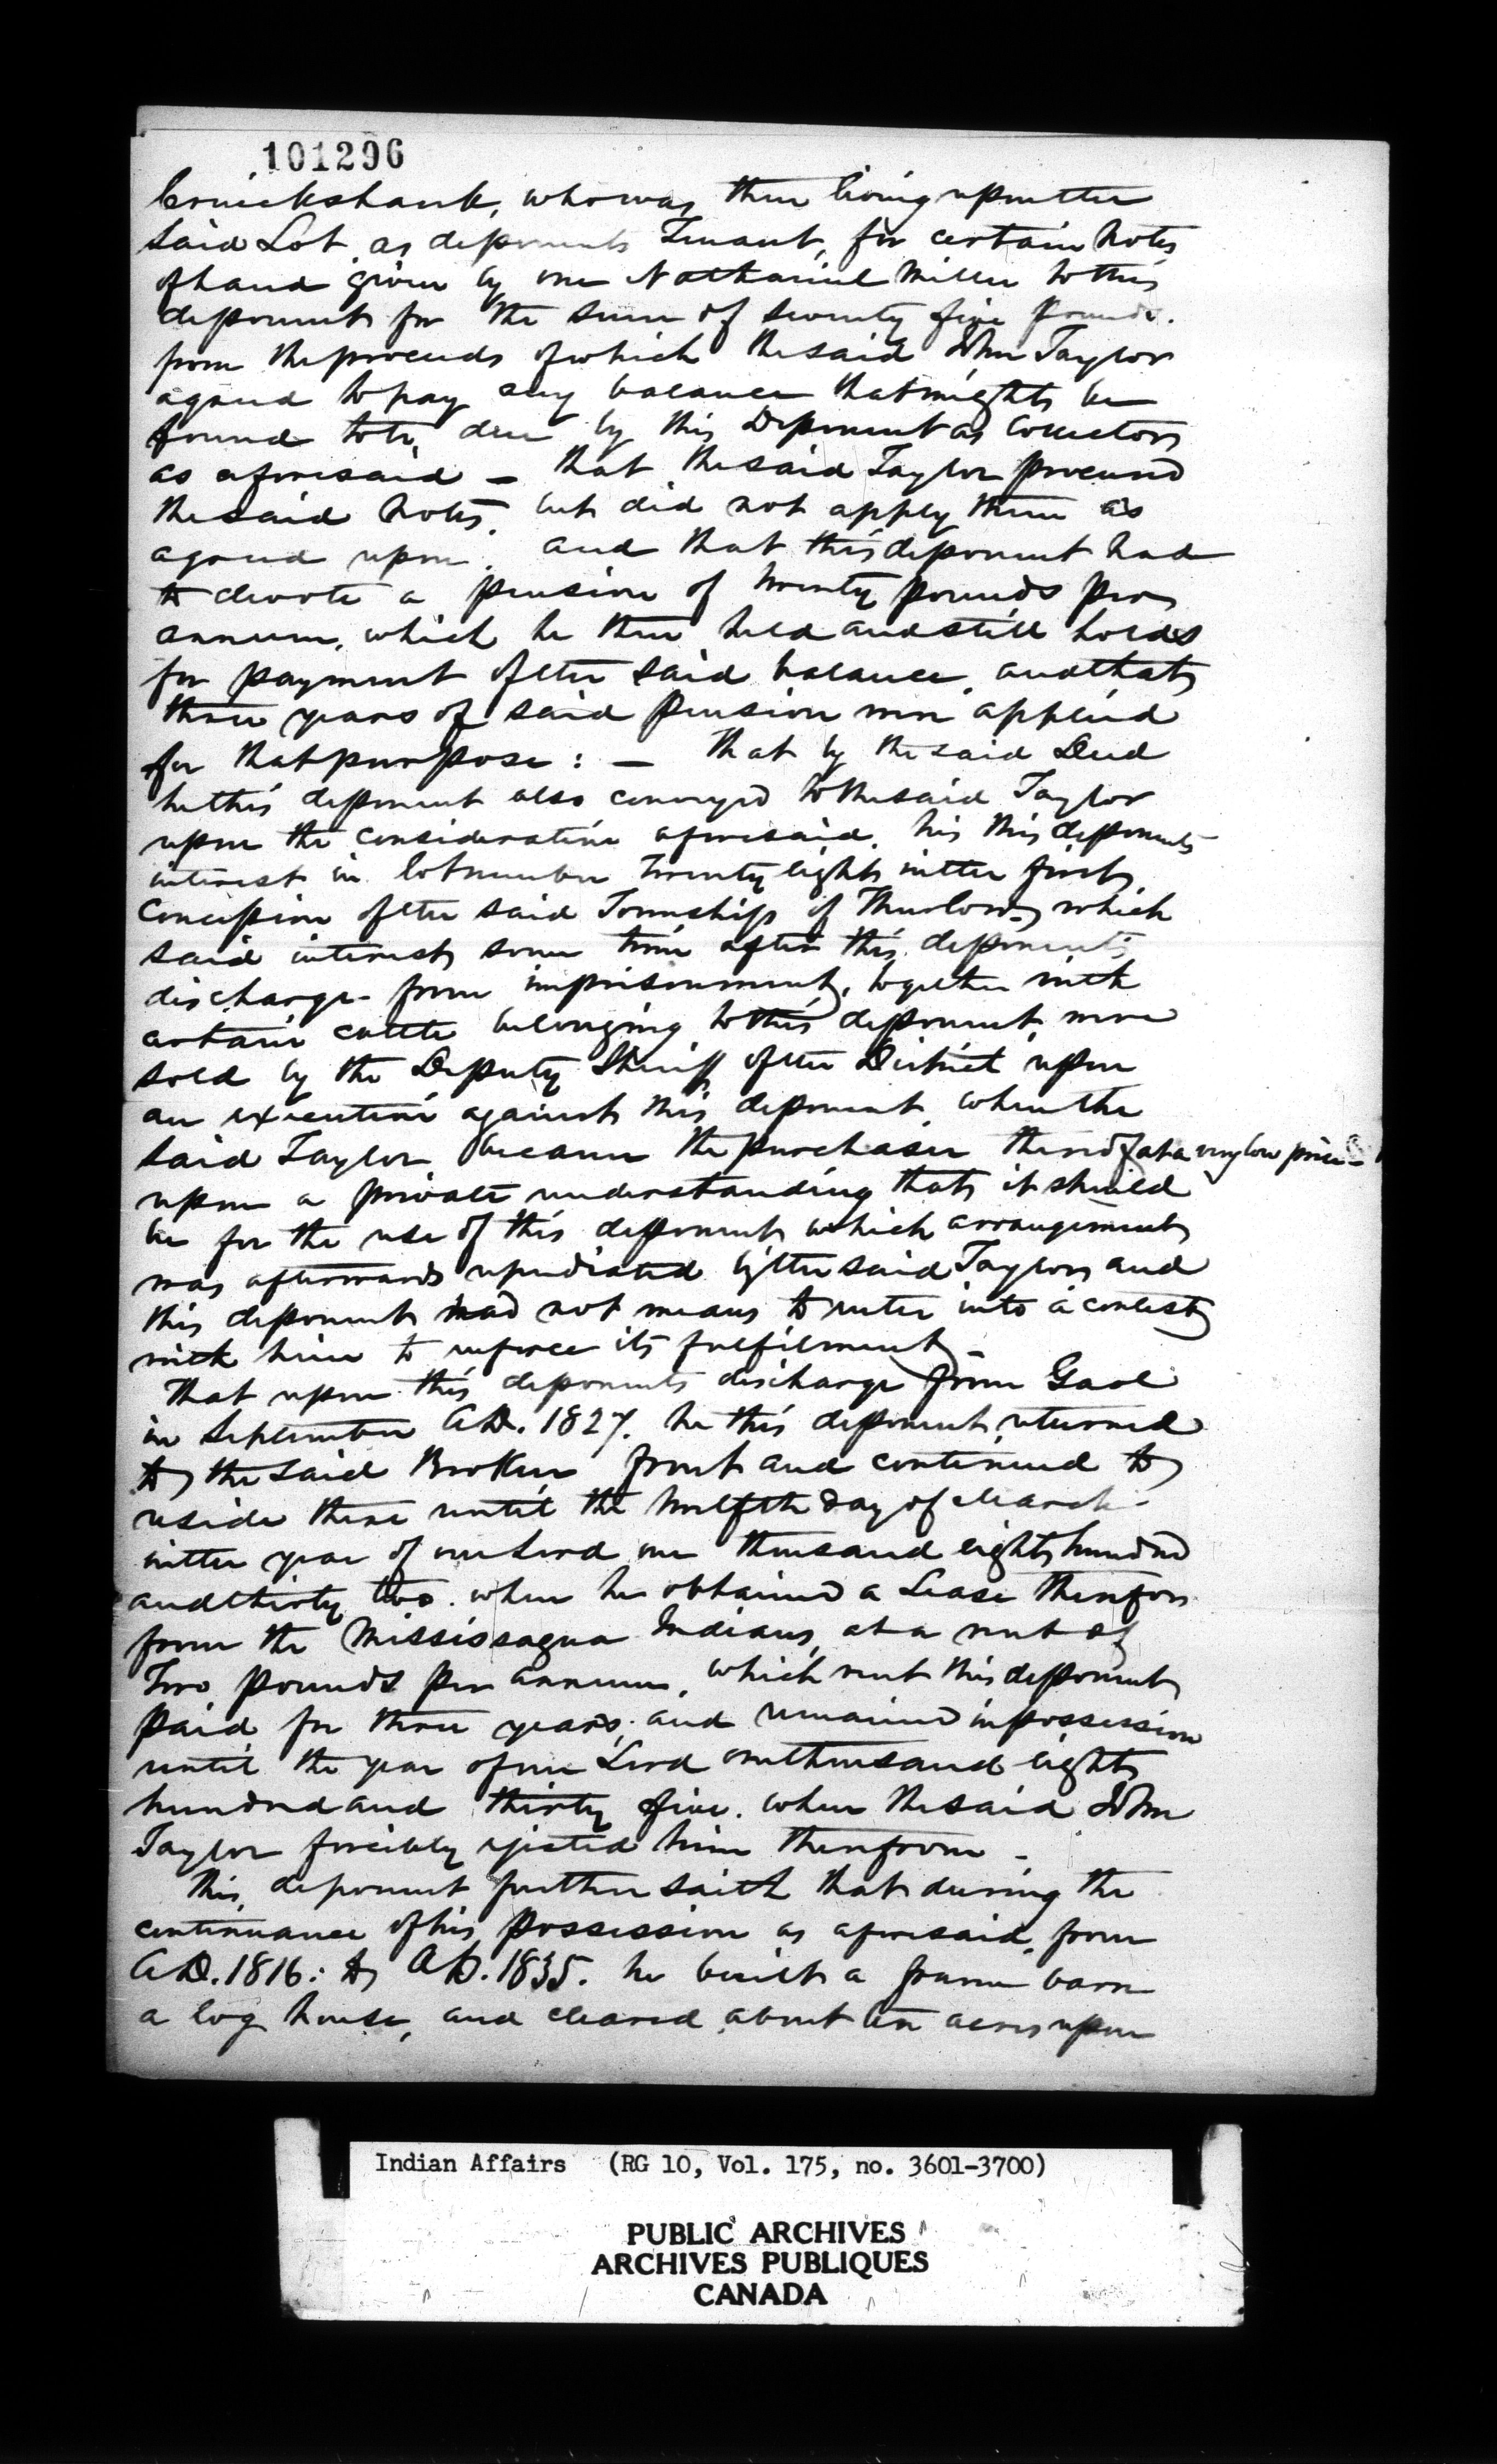 101296
Cruickshank, who was then living upon the
said Lot, as deponents Tenant, for certain Notes
of hand given by one Nathaniel Miller to this
deponent for the sum of seventy five pounds.
from the proceeds of which the said John Taylor
agreed to pay any balance that might be
found to be due by this Deponent as Collector
as aforesaid – that the said Taylor procured
the said Notes, but did not apply them as
agreed upon. and that this deponent had
to devote a pension of twenty pounds per
annum, which he then held and still holds
for payment of the said balance, and that
three years of said Pension were applied
for that purpose : – That by the said Deed
he this deponent also conveyed to the said Taylor
upon the consideration aforesaid, his this deponents
interest in lot number twenty eight in the first
Concession of the said Township of Thurlow, which
said interest some time after this deponents
discharge from imprisonment, together with
certain cattle belonging to this deponent were
sold by the Deputy Sheriff of the District upon
an execution against this deponent, when the
said Taylor became the purchaser thereof at a very low price
upon a private understanding that it should
be for the use of this deponent which arrangement
was afterwards repudiated by the said Taylor and
this deponent had not means to enter into a contest
with him to enforce its fulfilment –
That upon this deponents discharge from Gaol
in September A.D. 1827. he this deponent returned
to the said Broken front and continued to
reside there until the twelfth day of March
in the year of our Lord one thousand eight hundred
and thirty two. when he obtained a Lease therefor
from the Mississagua Indians, at a rent of
Two pounds per annum, which rent this deponent
paid for three years, and remained in possession
until the year of our Lord one thousand eight
hundred and thirty five. when the said John
Taylor forcibly ejected him therefrom –
This deponent further saith that during the
continuance of his possession as aforesaid, from
A.D. 1816: to A.D. 1835. he built a frame barn
a log house, and cleared about ten acres upon
Indian Affairs (RG 10, Vol. 175, no. 3601-3700)
PUBLIC ARCHIVES
ARCHIVES PUBLIQUES
CANADA